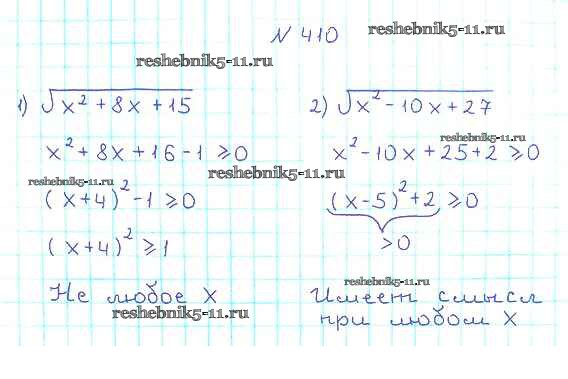 № 410
reshebnik5-11.ru
reshebnik5-11.ru
1) √x² + 8x + 15
2) √x² - 10x + 27
x² + 8x + 16 - 1 ⩾ 0
reshebnik5-11.ru
x² - 10x + 25 + 2 ⩾ 0
reshebnik5-11.ru
reshebnik5-11.ru
(x + 4)² - 1 ⩾ 0
(x - 5)² + 2 ⩾ 0
(x + 4)² ⩾ 1
> 0
reshebnik5-11.ru
Не любое x
Имеет смысл
reshebnik5-11.ru
при любом x